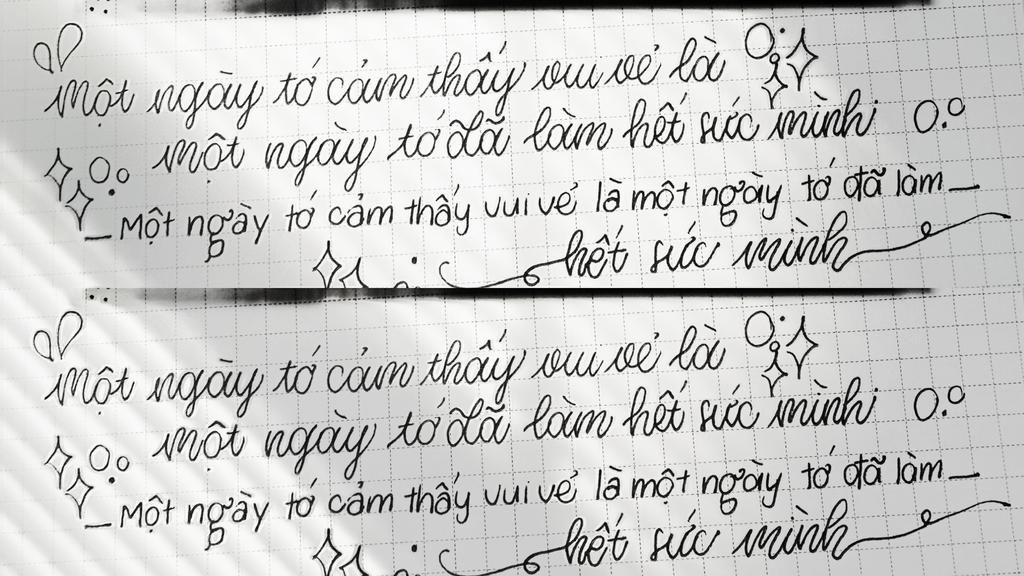 Một ngày tớ cảm thấy vui vẻ là
một ngày tớ đã làm hết sức mình
Một ngày tớ cảm thấy vui vẻ là một ngày tớ đã làm
hết sức mình
Một ngày tớ cảm thấy vui vẻ là
một ngày tớ đã làm hết sức mình
Một ngày tớ cảm thấy vui vẻ là một ngày tớ đã làm
hết sức mình